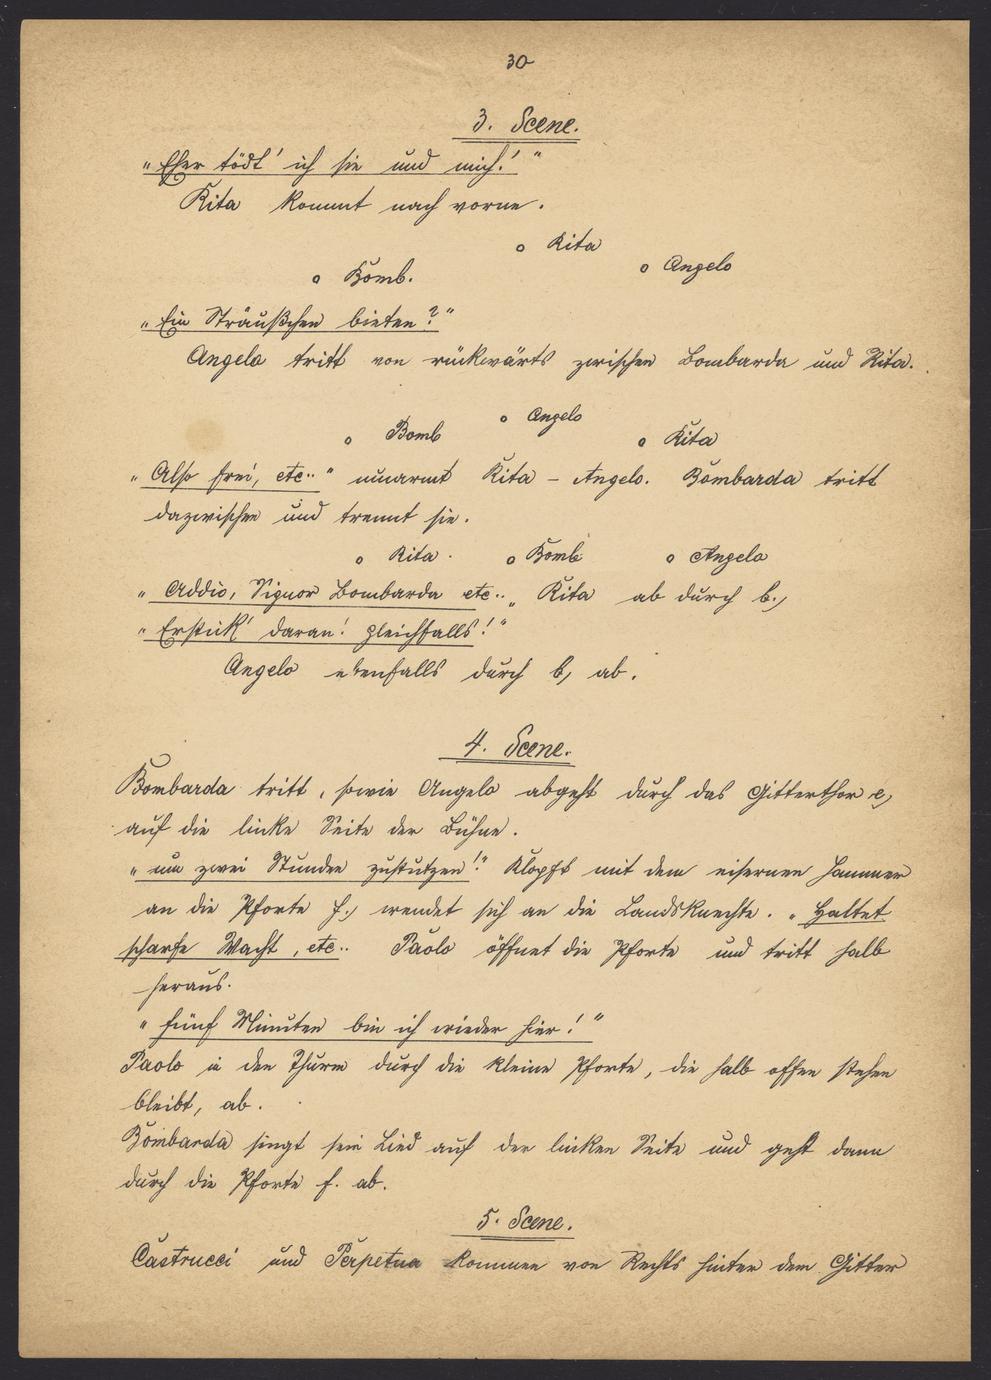 30
3. Scene.
„Eher tödt' ich sie und mich!"
Rita kommt nach vorne.
o Rita
o Angelo
o Bomb.
„Ein Sträußchen bieten?"
Angelo tritt von rückwärts zwischen Bombarda und Rita.
o Angelo
o Bomb
o Rita
„Also frei, etc.." umarmt Rita – Angelo. Bombarda tritt
dazwischen und trennt sie.
o Rita.
o Bomb
o Angelo
„Addio, Signor Bombarda etc..„ Rita ab durch b.)
„Erstick' daran! gleichfalls!"
Angelo ebenfalls durch b) ab.
4. Scene.
Bombarda tritt, sowie Angelo abgeht durch das Gitterthor e)
auf die linke Seite der Bühne.
„um zwei Stunden zustutzen!" Klopft mit dem eisernen Hammer
an die Pforte f.) wendet sich an die Landsknechte. „Haltet
scharfe Wacht, etc.. Paolo öffnet die Pforte und tritt halb
heraus.
„fünf Minuten bin ich wieder hier!"
Paolo in den Thurm durch die kleine Pforte, die halb offen stehen
bleibt, ab.
Bombarda singt sein Lied auf der linken Seite und geht dann
durch die Pforte f. ab.
5. Scene.
Castrucci und Perpetua kommen von Rechts hinter dem Gitter